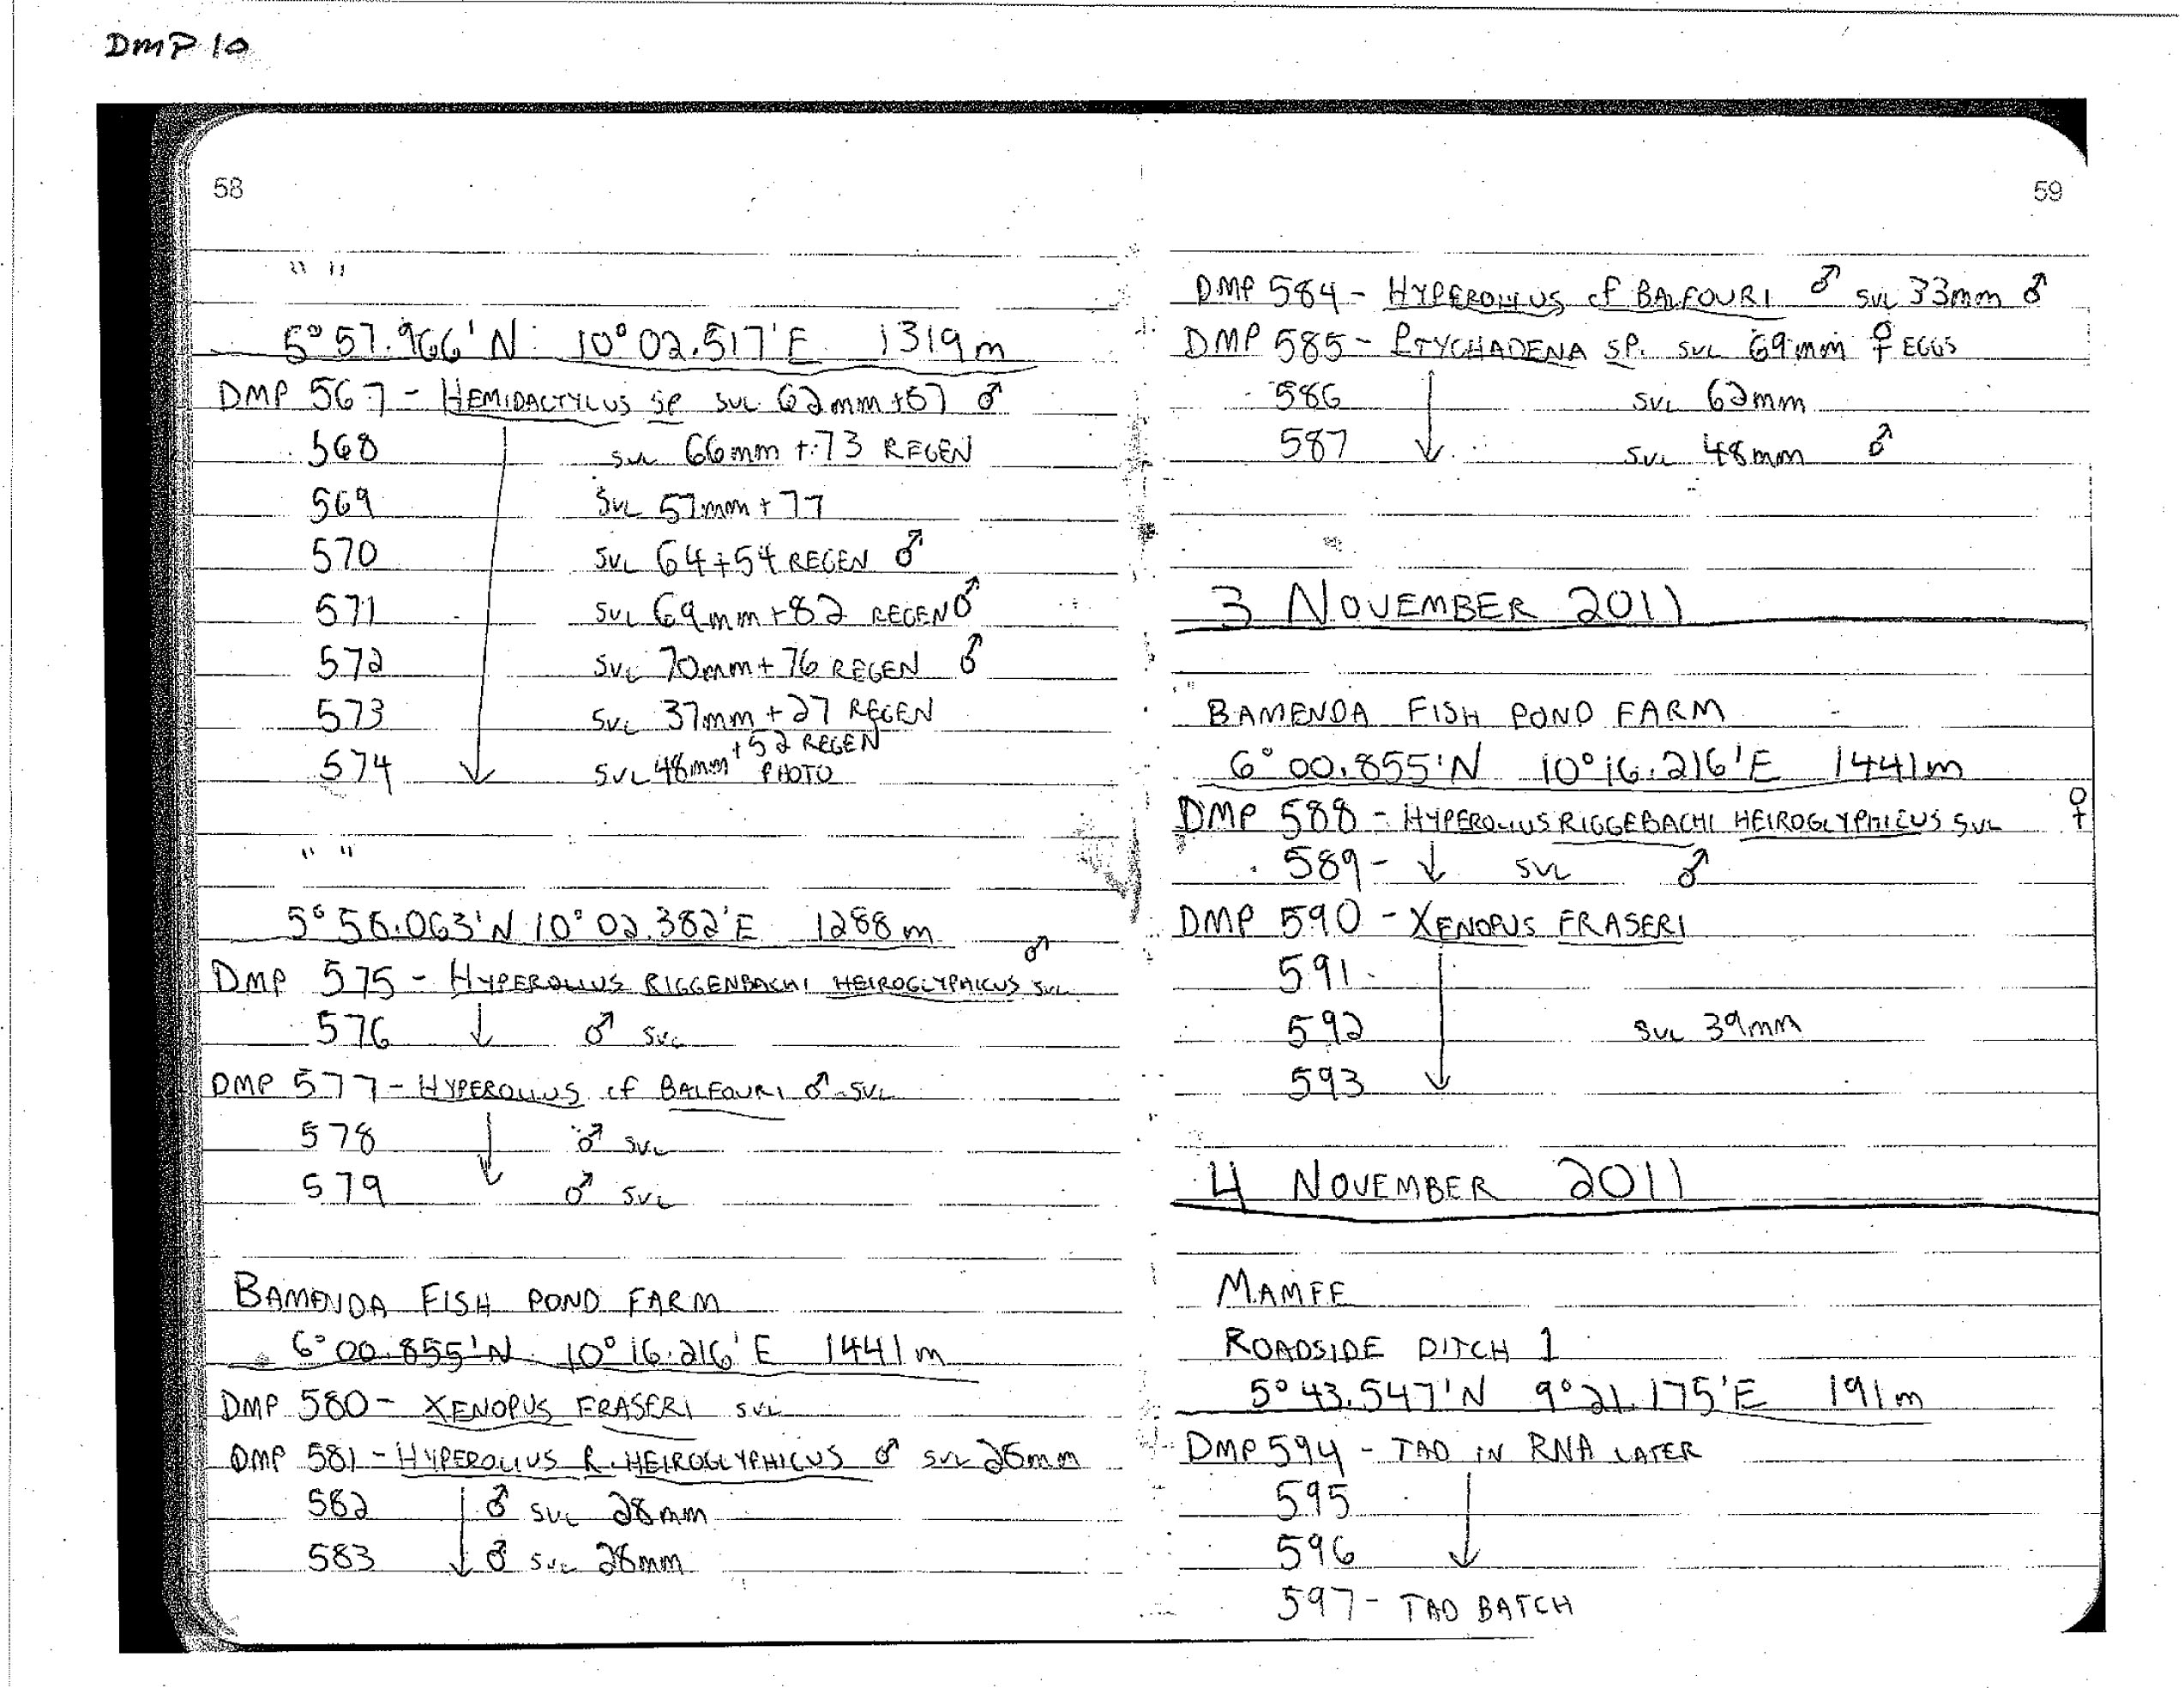 DMP 10
58
" "
5° 57.966' N 10° 02.517' E 1319 m
DMP 567 - HEMIDACTYLUS SP SVL 62mm +57 ♂
568 SVL 66mm + 73 REGEN
569 SVL 57mm + 77
570 SVL 64+54 REGEN ♂
571 SVL 69mm +82 REGEN ♂
572 SVL 70mm + 76 REGEN ♂
573 SVL 37mm + 27 REGEN
574 ↓ SVL 48mm +52 REGEN PHOTO
" "
5° 58.063' N 10° 02.382' E 1288 m
DMP 575 - HYPEROLIUS RIGGENBACHI HEIROGLYPHICUS SVL ♂
576 ↓ ♂ SVL
DMP 577 - HYPEROLIUS cf BALFOURI ♂ SVL
578 ♂ SVL
579 ↓ ♂ SVL
BAMENDA FISH POND FARM
6° 00.855' N 10° 16.216' E 1441 m
DMP 580 - XENOPUS FRASERI SVL
DMP 581 - HYPEROLIUS R. HEIROGLYPHICUS ♂ SVL 26mm
582 ♂ SVL 28mm
583 ↓ ♂ SVL 28mm
59
DMP 584 - HYPEROLIUS cf BALFOURI ♂ SVL 33mm ♂
DMP 585 - PTYCHADENA SP. SVL 69mm ♀ EGGS
586 SVL 62mm
587 ↓ SVL 48mm ♂
3 NOVEMBER 2011
BAMENDA FISH POND FARM
6° 00.855' N 10° 16.216' E 1441 m
DMP 588 - HYPEROLIUS RIGGEBACHI HEIROGLYPHICUS SVL ♀
589 - ↓ SVL ♂
DMP 590 - XENOPUS FRASERI
591
592 SVL 39mm
593 ↓
4 NOVEMBER 2011
MAMFE
ROADSIDE DITCH 1
5° 43.547' N 9° 21.175' E 191 m
DMP 594 - TAD IN RNA LATER
595
596 ↓
597 - TAD BATCH